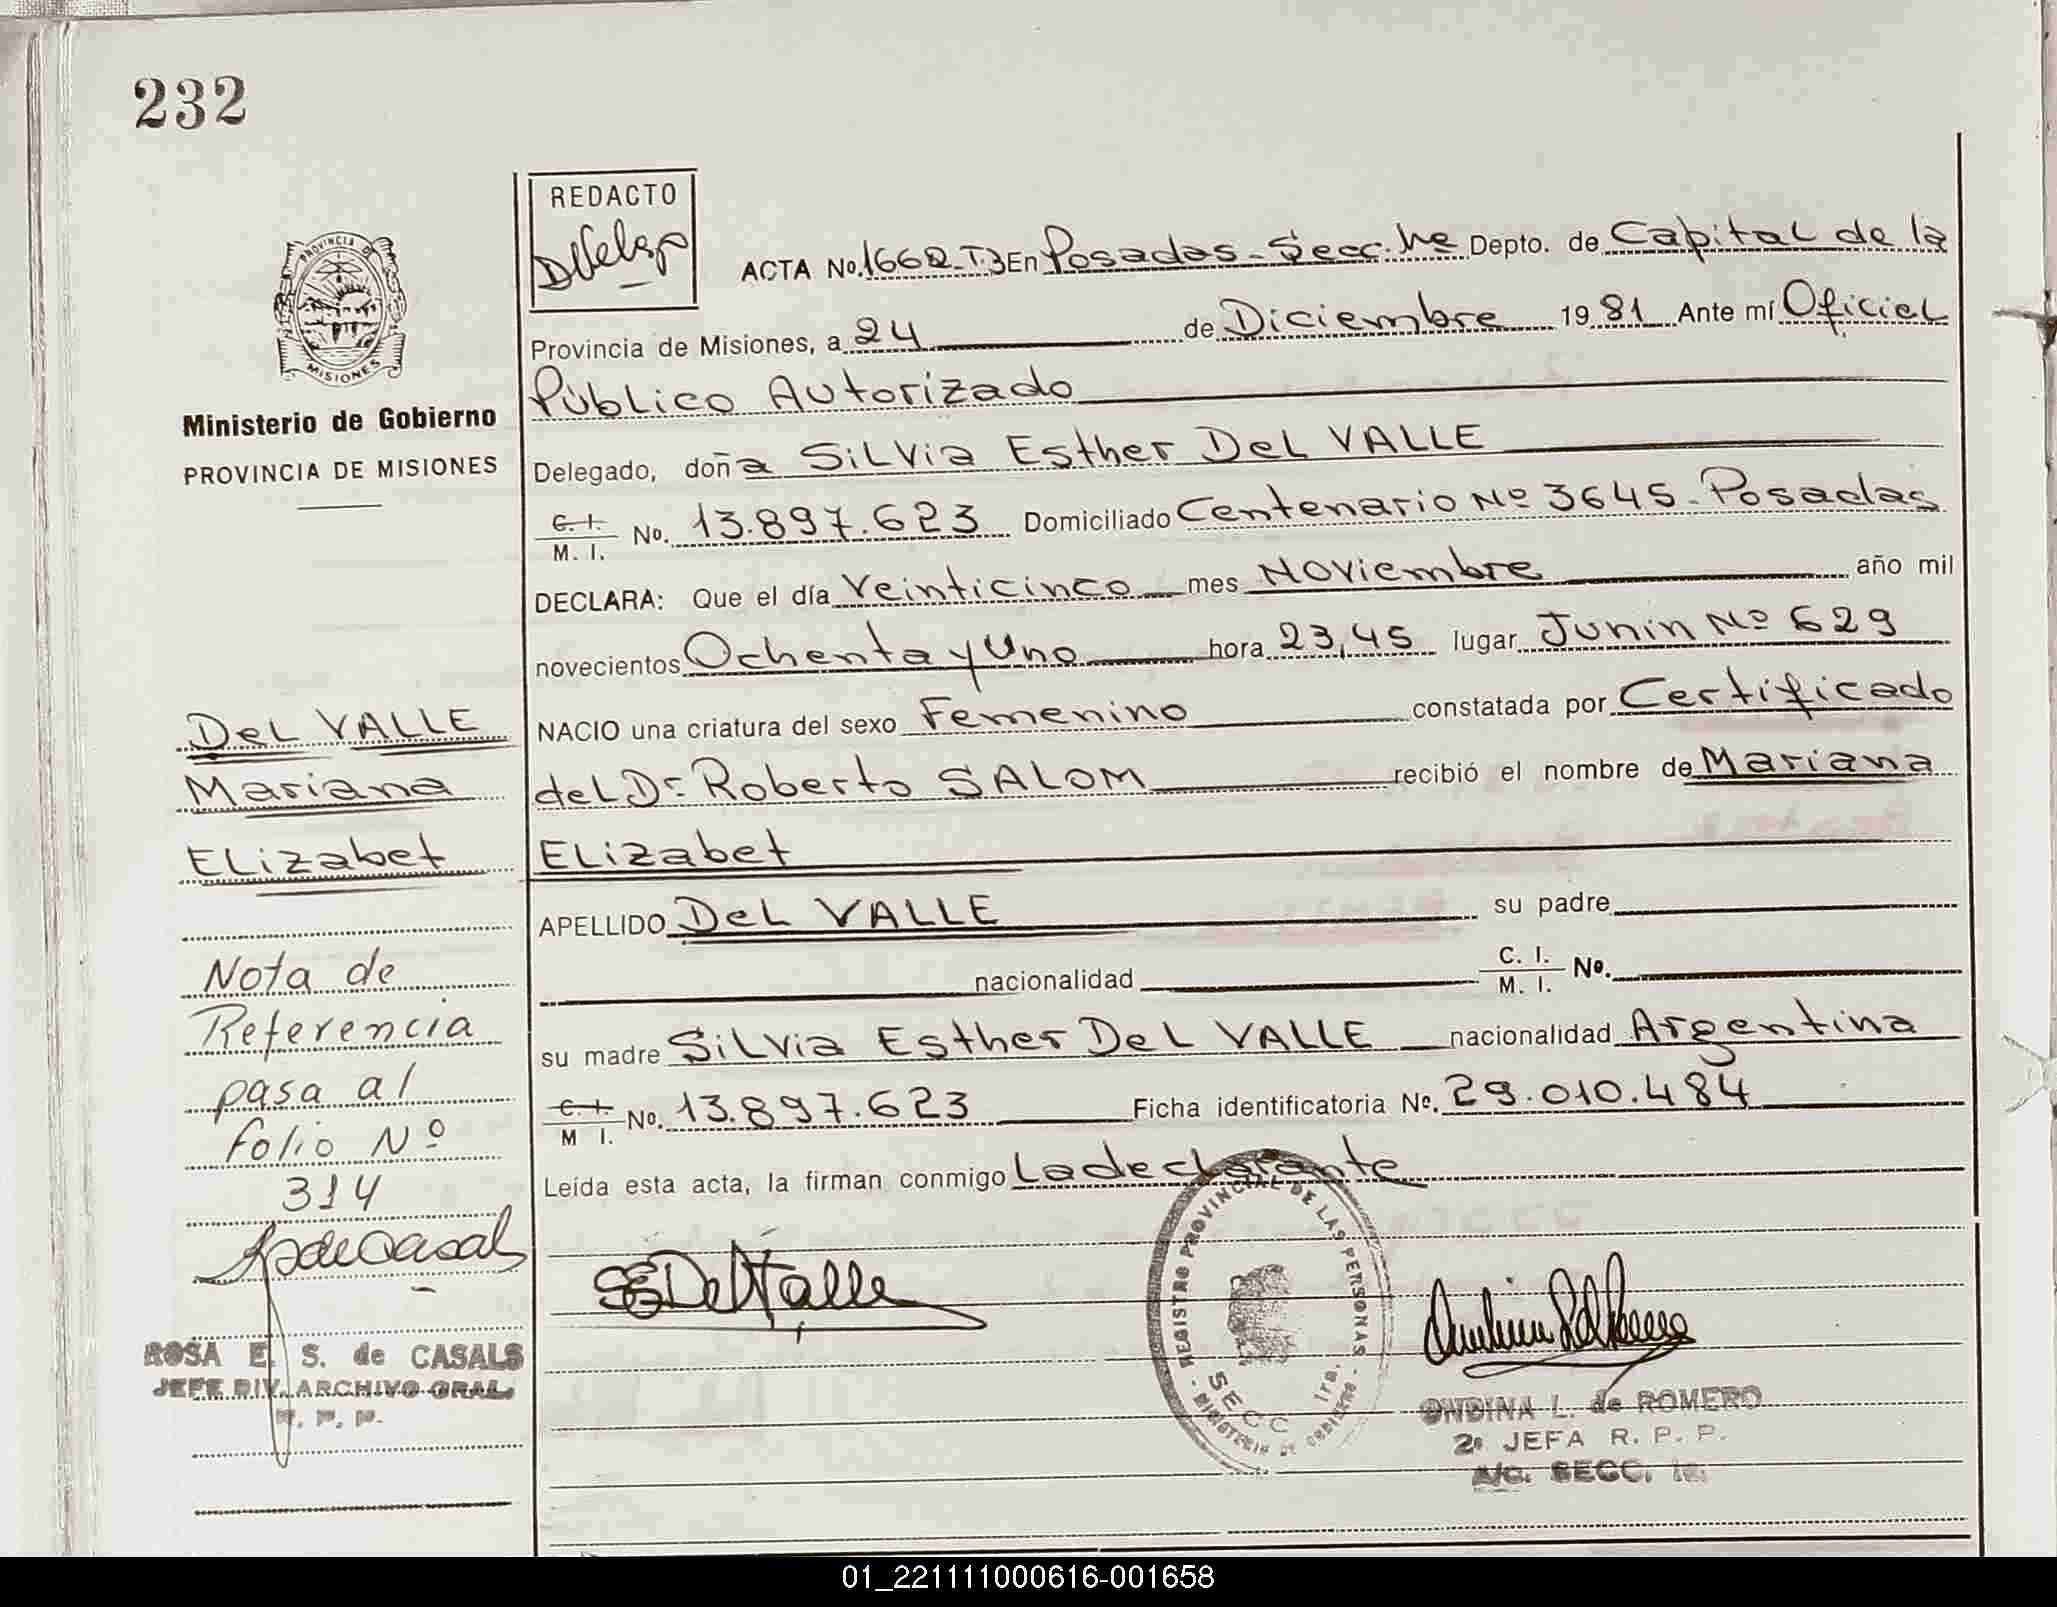 232
REDACTO
PROVINCIA DE
MISIONES
ACTA No. 1662-T.3 En Posadas - Secc. 1ra Depto. de Capital de la
Provincia de Misiones, a 24 de Diciembre 1981 Ante mí Oficial
Público Autorizado
Ministerio de Gobierno
PROVINCIA DE MISIONES
Delegado, doña Silvia Esther Del VALLE
C. I. / M. I. No. 13.897.623 Domiciliado Centenario Nº 3645 - Posadas
DECLARA: Que el día Veinticinco mes Noviembre año mil
novecientos Ochenta y Uno hora 23,45 lugar Junin Nº 629
NACIO una criatura del sexo Femenino constatada por Certificado
del Dr Roberto SALOM recibió el nombre de Mariana
Elizabet
APELLIDO Del VALLE su padre
nacionalidad C. I. / M. I. No.
su madre Silvia Esther Del VALLE nacionalidad Argentina
C. I. / M. I. No. 13.897.623 Ficha identificatoria No. 29.010.484
Leída esta acta, la firman conmigo La declarante
Del VALLE
Mariana
Elizabet
Nota de
Referencia
pasa al
folio Nº
314
ROSA E. S. de CASALS
JEFE DIV. ARCHIVO GRAL.
R. P. P.
SEDelValle
REGISTRO PROVINCIAL DE LAS PERSONAS
SECC 1ra.
MINISTERIO DE GOBIERNO
ONDINA L. de ROMERO
2º JEFA R. P. P.
A/C. SECC. 1a.
01_221111000616-001658